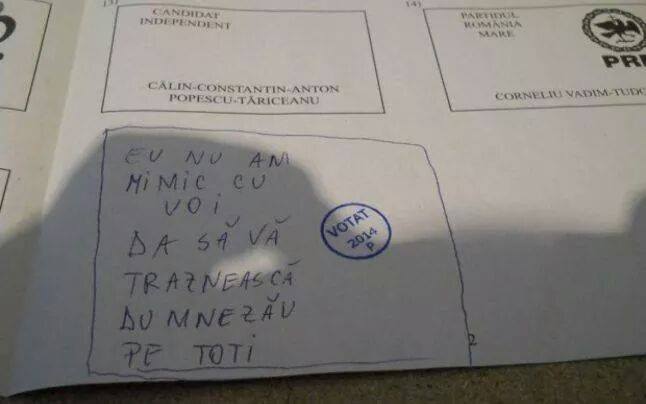 13)
CANDIDAT
INDEPENDENT
CĂLIN-CONSTANTIN-ANTON
POPESCU-TĂRICEANU
14)
PARTIDUL
ROMÂNIA
MARE
PRM
CORNELIU VADIM-TUDO
EU NU AM
MIMIC CU
VOI
DA SĂ VĂ
TRAZNEASCĂ
DUMNEZĂU
PE TOTI
VOTAT
2014
P